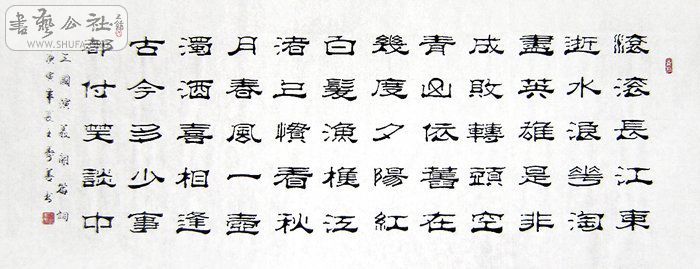 滚滚長江東
逝水浪花淘
盡英雄是非
成敗轉頭空
青山依舊在
幾度夕陽紅
白髮漁樵江
渚上慣看秋
月春風一壺
濁酒喜相逢
古今多少事
都付笑談中
三國演義開篇詞
書藝公社